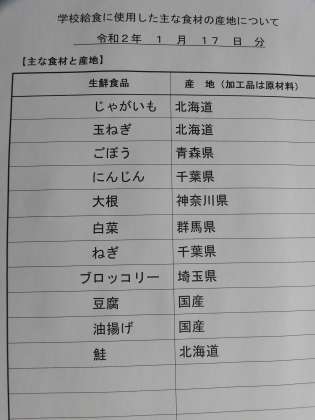 学校給食に使用した主な食材の産地について
令和2年 1月17日分
【主な食材と産地】
生鮮食品 産 地（加工品は原材料）
じゃがいも 北海道
玉ねぎ 北海道
ごぼう 青森県
にんじん 千葉県
大根 神奈川県
白菜 群馬県
ねぎ 千葉県
ブロッコリー 埼玉県
豆腐 国産
油揚げ 国産
鮭 北海道